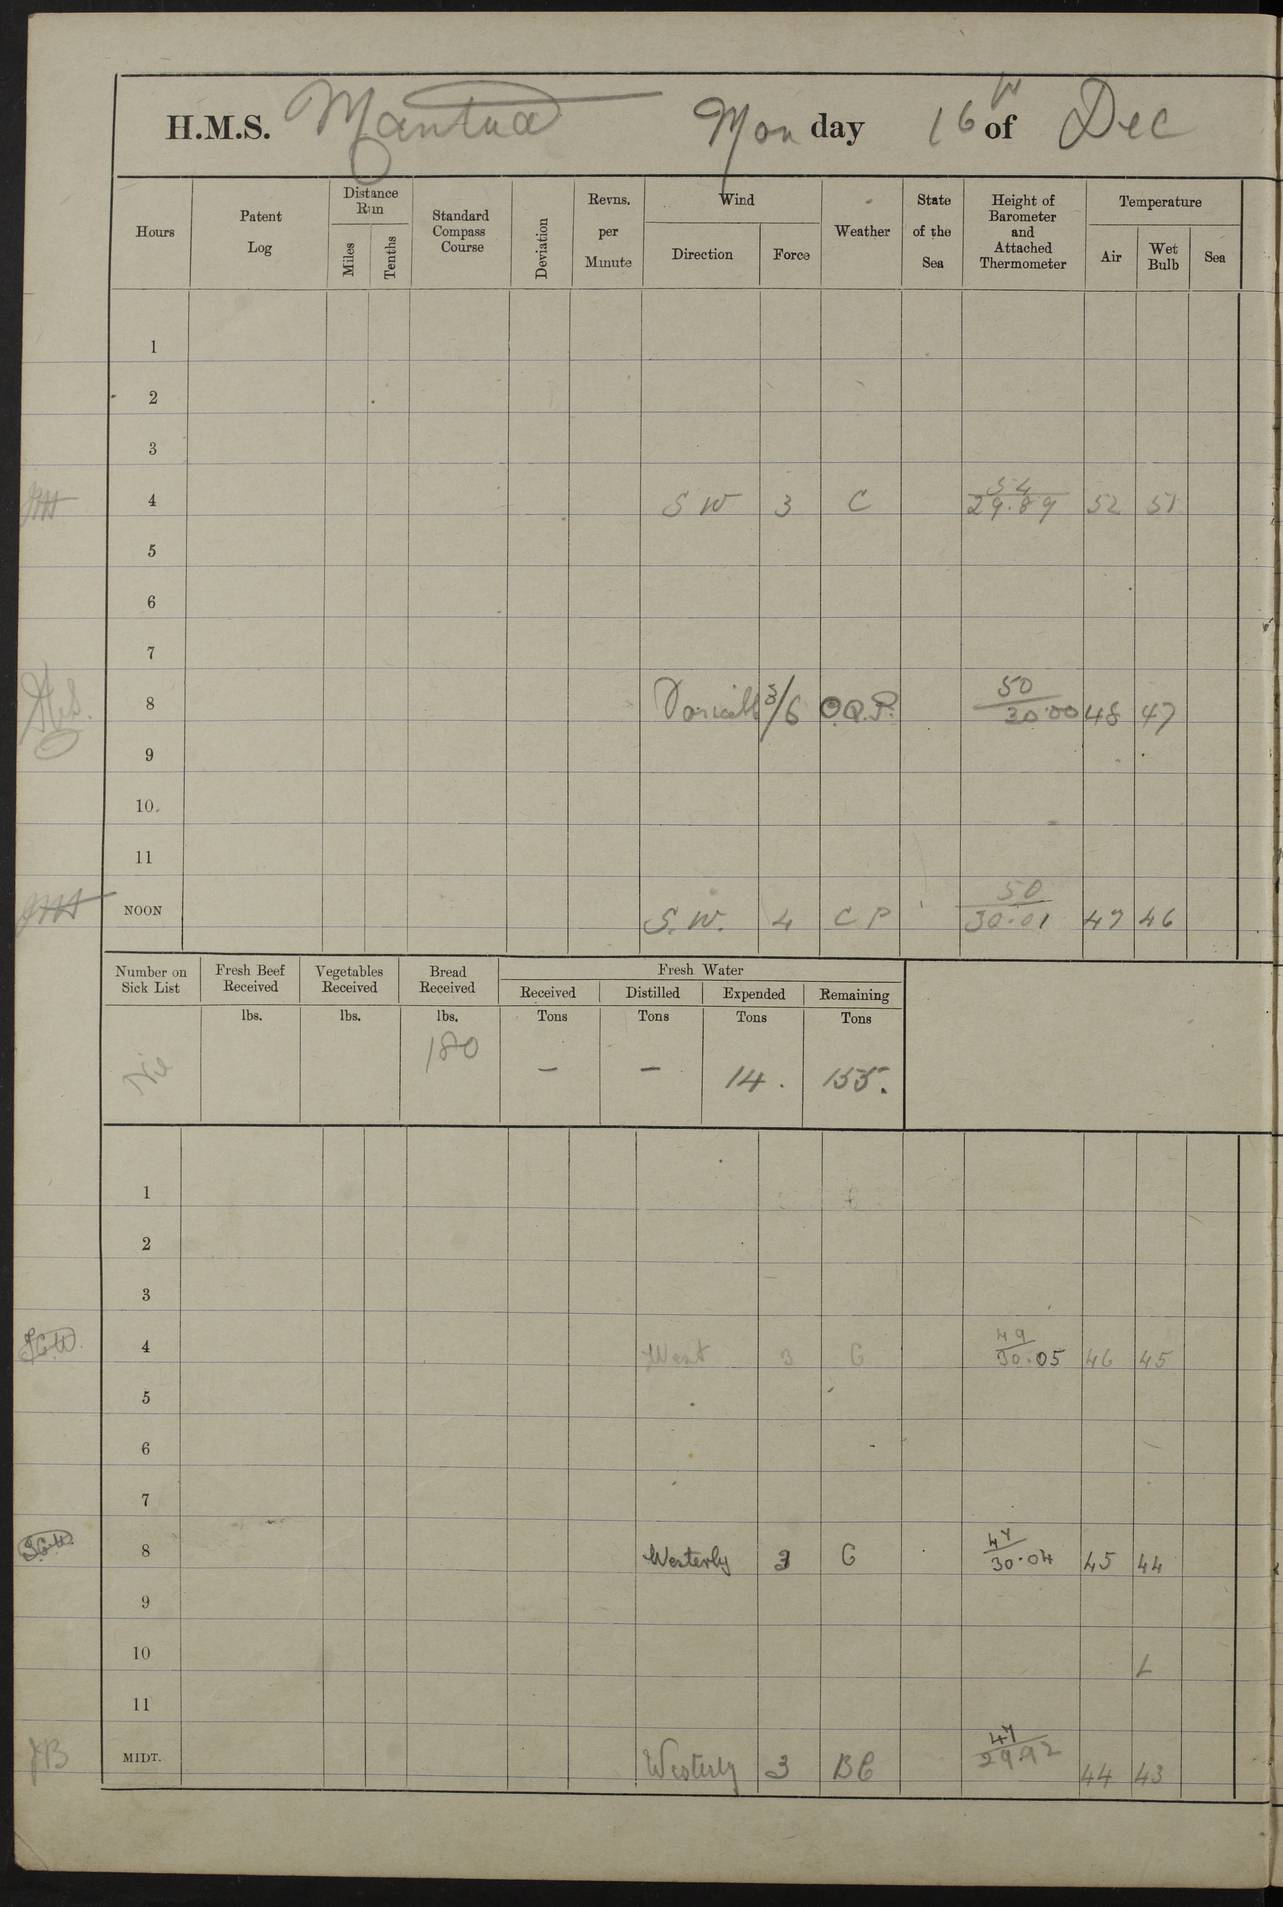 H.M.S. Mantua Monday 16th of Dec
Hours Patent Log Distance Run Miles Tenths Standard Compass Course Deviation Revns. per Minute Wind Direction Force Weather State of the Sea Height of Barometer and Attached Thermometer Temperature Air Wet Bulb Sea
1
2
3
54
4 S W 3 C 29.89 52 51
5
6
7
50
8 Variable 3/6 O.Q.P. 30.00 48 47
9
10.
11
50
NOON S.W. 4 C P 30.01 47 46
Number on Sick List Fresh Beef Received Vegetables Received Bread Received Fresh Water
Received Distilled Expended Remaining
lbs. lbs. lbs. Tons Tons Tons Tons
Nil 180 – – 14. 155.
1
2
3
49
JGW. 4 West 3 C 30.05 46 45
5
6
7
47
JGW. 8 Westerly 3 C 30.04 45 44
9
10 L
11
47
JB MIDT. Westerly 3 BC 29.92 44 43